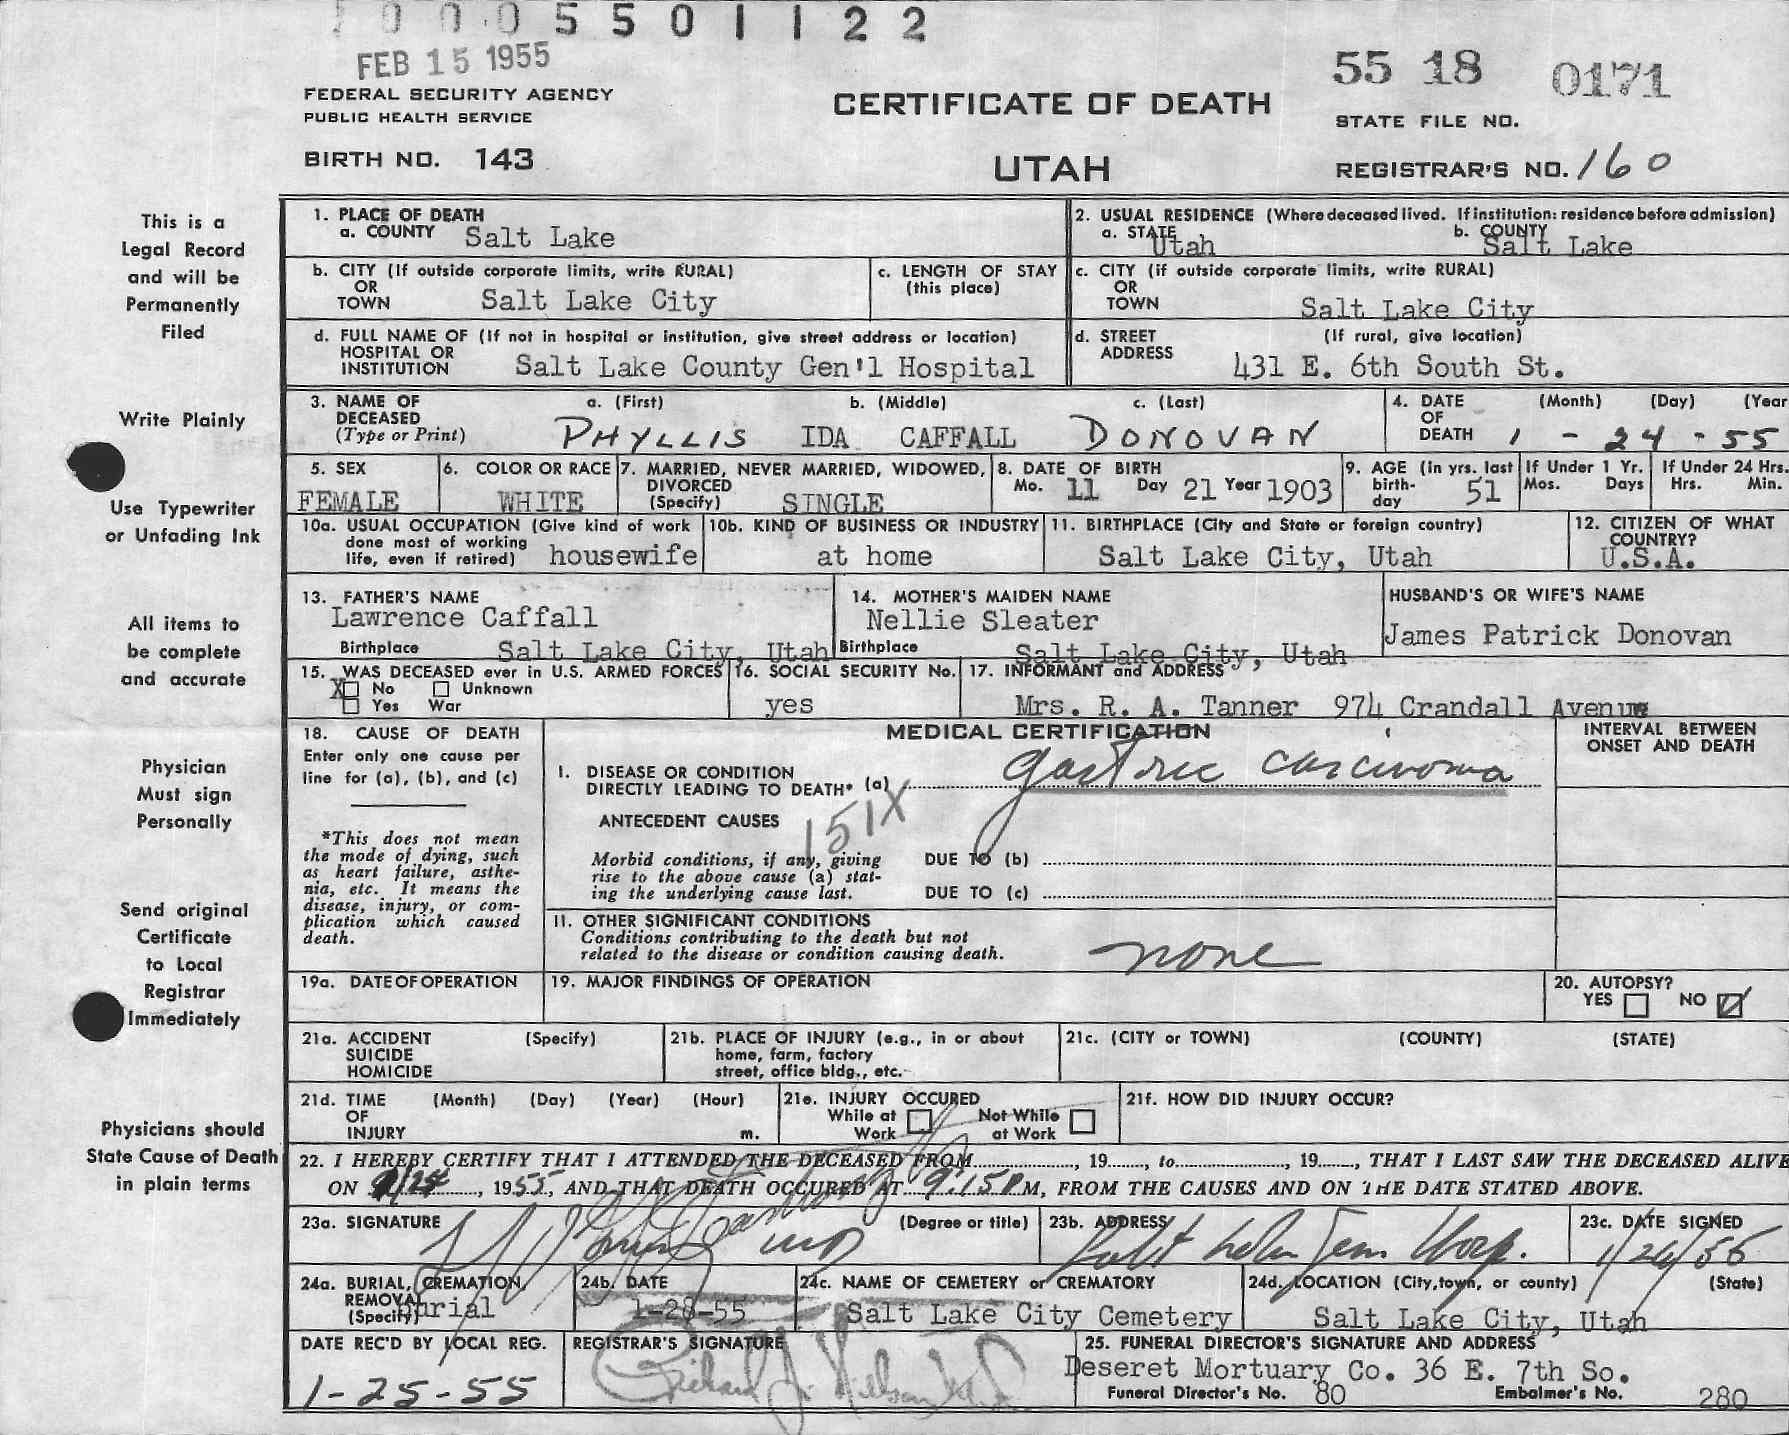 0005501122
FEB 15 1955
55 18 0171
FEDERAL SECURITY AGENCY
PUBLIC HEALTH SERVICE
CERTIFICATE OF DEATH
STATE FILE NO.
BIRTH NO. 143
UTAH
REGISTRAR'S NO. 160
This is a
Legal Record
and will be
Permanently
Filed
Write Plainly
Use Typewriter
or Unfading Ink
All items to
be complete
and accurate
Physician
Must sign
Personally
Send original
Certificate
to Local
Registrar
Immediately
Physicians should
State Cause of Death
in plain terms
1. PLACE OF DEATH
a. COUNTY Salt Lake
2. USUAL RESIDENCE (Where deceased lived. If institution: residence before admission)
a. STATE Utah b. COUNTY Salt Lake
b. CITY (If outside corporate limits, write RURAL)
OR
TOWN Salt Lake City
c. LENGTH OF STAY
(this place)
c. CITY (if outside corporate limits, write RURAL)
OR
TOWN Salt Lake City
d. FULL NAME OF (If not in hospital or institution, give street address or location)
HOSPITAL OR
INSTITUTION Salt Lake County Gen'l Hospital
d. STREET (If rural, give location)
ADDRESS 431 E. 6th South St.
3. NAME OF a. (First) b. (Middle) c. (Last)
DECEASED
(Type or Print) PHYLLIS IDA CAFFALL DONOVAN
4. DATE (Month) (Day) (Year
OF
DEATH 1 - 24 - 55
5. SEX
FEMALE
6. COLOR OR RACE
WHITE
7. MARRIED, NEVER MARRIED, WIDOWED,
DIVORCED
(Specify) SINGLE
8. DATE OF BIRTH
Mo. 11 Day 21 Year 1903
9. AGE (in yrs. last
birth-
day 51
If Under 1 Yr.
Mos. Days
If Under 24 Hrs.
Hrs. Min.
10a. USUAL OCCUPATION (Give kind of work
done most of working
life, even if retired) housewife
10b. KIND OF BUSINESS OR INDUSTRY
at home
11. BIRTHPLACE (City and State or foreign country)
Salt Lake City, Utah
12. CITIZEN OF WHAT
COUNTRY?
U.S.A.
13. FATHER'S NAME
Lawrence Caffall
Birthplace Salt Lake City, Utah
14. MOTHER'S MAIDEN NAME
Nellie Sleater
Birthplace Salt Lake City, Utah
HUSBAND'S OR WIFE'S NAME
James Patrick Donovan
15. WAS DECEASED ever in U.S. ARMED FORCES
X No Unknown
Yes War
16. SOCIAL SECURITY No.
yes
17. INFORMANT and ADDRESS
Mrs. R. A. Tanner 974 Crandall Avenue
18. CAUSE OF DEATH
Enter only one cause per
line for (a), (b), and (c)
*This does not mean
the mode of dying, such
as heart failure, asthe-
nia, etc. It means the
disease, injury, or com-
plication which caused
death.
MEDICAL CERTIFICATION
INTERVAL BETWEEN
ONSET AND DEATH
I. DISEASE OR CONDITION
DIRECTLY LEADING TO DEATH* (a) gastric carcinoma
151X
ANTECEDENT CAUSES
Morbid conditions, if any, giving
rise to the above cause (a) stat-
ing the underlying cause last.
DUE TO (b)
DUE TO (c)
II. OTHER SIGNIFICANT CONDITIONS
Conditions contributing to the death but not
related to the disease or condition causing death.
none
19a. DATE OF OPERATION
19. MAJOR FINDINGS OF OPERATION
20. AUTOPSY?
YES NO
21a. ACCIDENT (Specify)
SUICIDE
HOMICIDE
21b. PLACE OF INJURY (e.g., in or about
home, farm, factory
street, office bldg., etc.
21c. (CITY or TOWN) (COUNTY) (STATE)
21d. TIME (Month) (Day) (Year) (Hour)
OF
INJURY m.
21e. INJURY OCCURED
While at Work Not While at Work
21f. HOW DID INJURY OCCUR?
22. I HEREBY CERTIFY THAT I ATTENDED THE DECEASED FROM, 19, to, 19, THAT I LAST SAW THE DECEASED ALIVE
ON 1/24, 1955, AND THAT DEATH OCCURED AT 9:15 P M, FROM THE CAUSES AND ON THE DATE STATED ABOVE.
23a. SIGNATURE (Degree or title)
MD
23b. ADDRESS
Salt Lake Gen Hosp.
23c. DATE SIGNED
24a. BURIAL, CREMATION,
REMOVAL
(Specify) Burial
24b. DATE
1-28-55
24c. NAME OF CEMETERY or CREMATORY
Salt Lake City Cemetery
24d. LOCATION (City, town, or county) (State)
Salt Lake City, Utah
DATE REC'D BY LOCAL REG.
1-25-55
REGISTRAR'S SIGNATURE
Richard J. Nelson
25. FUNERAL DIRECTOR'S SIGNATURE AND ADDRESS
Deseret Mortuary Co. 36 E. 7th So.
Funeral Director's No. 80 Embalmer's No. 280